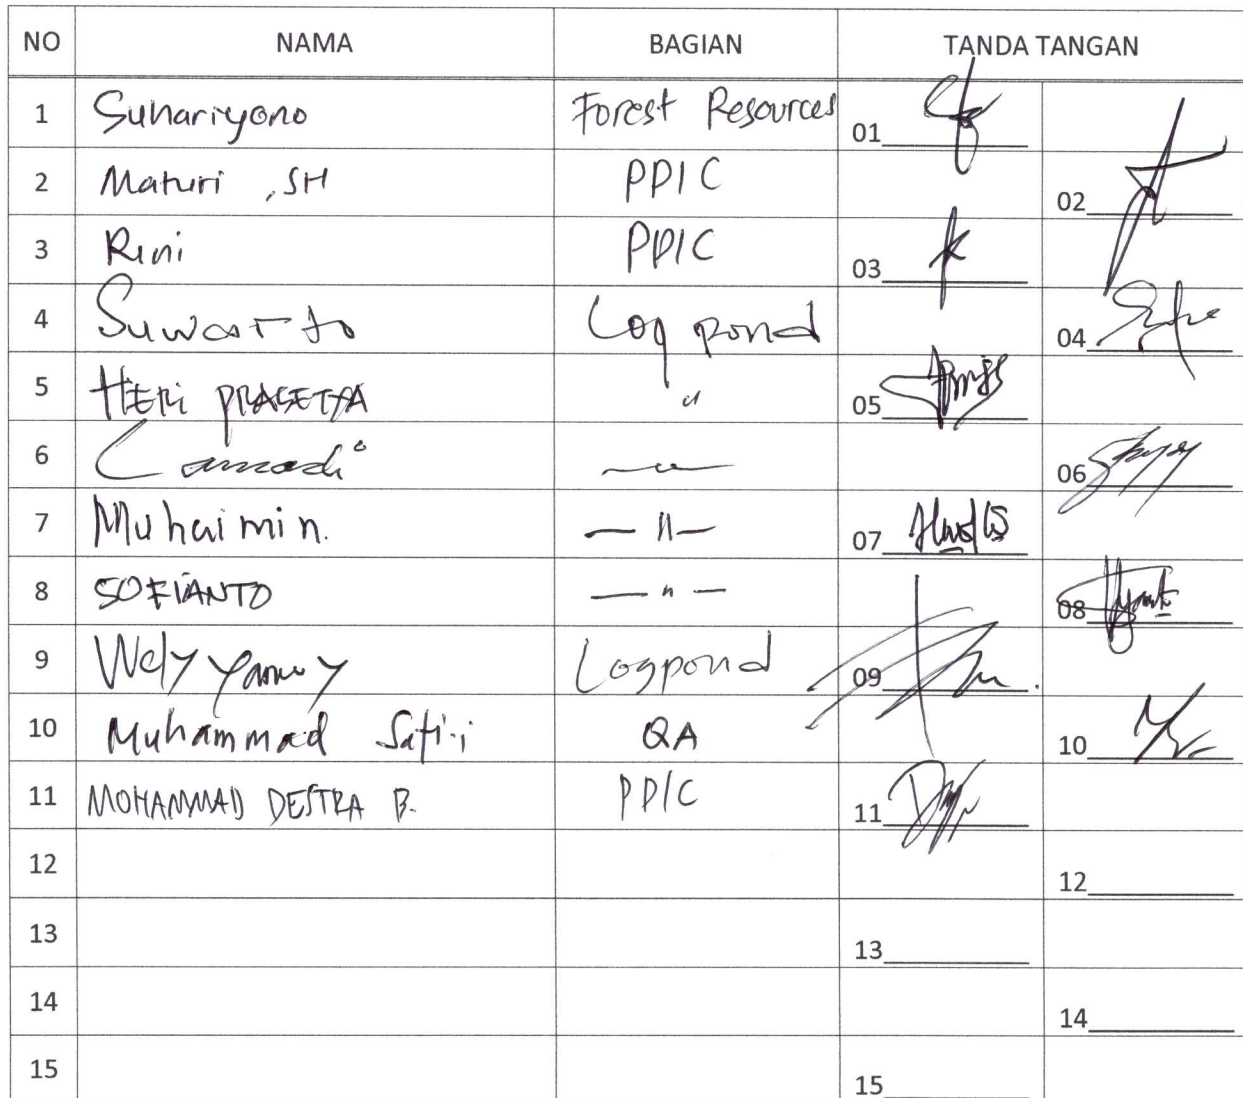 NO NAMA BAGIAN TANDA TANGAN
1 Suhariyono Forest Resources 01
2 Maturi, SH PPIC 02
3 Rini PPIC 03
4 Suwarto Log pond 04
5 HERI PRASETYA " 05
6 06
7 Muhaimin. — " — 07
8 SOFIANTO — " — 08
9 Wely Logpond 09
10 Muhammad QA 10
11 MOHAMMAD DESTRA B. PPIC 11
12 12
13 13
14 14
15 15